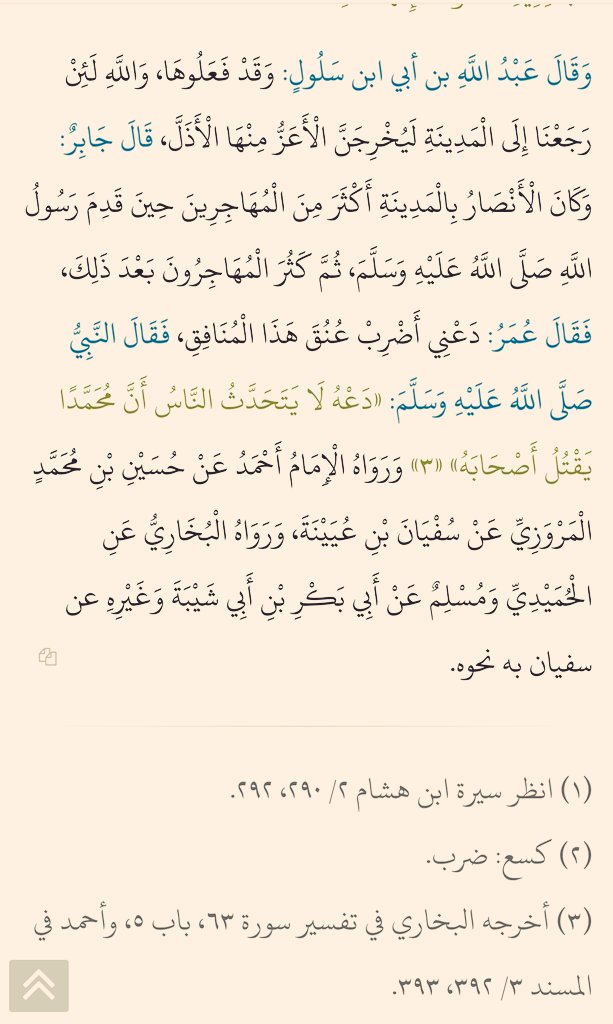 وَقَالَ عَبْدُ اللَّهِ بن أبي ابن سَلُولٍ: وَقَدْ فَعَلُوهَا، وَاللَّهِ لَئِنْ
رَجَعْنَا إِلَى الْمَدِينَةِ لَيُخْرِجَنَّ الْأَعَزُّ مِنْهَا الْأَذَلَّ، قَالَ جَابِرٌ:
وَكَانَ الْأَنْصَارُ بِالْمَدِينَةِ أَكْثَرَ مِنَ الْمُهَاجِرِينَ حِينَ قَدِمَ رَسُولُ
اللَّهِ صَلَّى اللَّهُ عَلَيْهِ وَسَلَّمَ، ثُمَّ كَثُرَ الْمُهَاجِرُونَ بَعْدَ ذَلِكَ،
فَقَالَ عُمَرُ: دَعْنِي أَضْرِبْ عُنُقَ هَذَا الْمُنَافِقِ، فَقَالَ النَّبِيُّ
صَلَّى اللَّهُ عَلَيْهِ وَسَلَّمَ: «دَعْهُ لَا يَتَحَدَّثُ النَّاسُ أَنَّ مُحَمَّدًا
يَقْتُلُ أَصْحَابَهُ» «٣» وَرَوَاهُ الْإِمَامُ أَحْمَدُ عَنْ حُسَيْنِ بْنِ مُحَمَّدٍ
الْمَرْوَزِيِّ عَنْ سُفْيَانَ بْنِ عُيَيْنَةَ، وَرَوَاهُ الْبُخَارِيُّ عَنِ
الْحُمَيْدِيِّ وَمُسْلِمٌ عَنْ أَبِي بَكْرِ بْنِ أَبِي شَيْبَةَ وَغَيْرِهِ عن
سفيان به نحوه.
(١) انظر سيرة ابن هشام ٢/ ٢٩٠، ٢٩٢.
(٢) كسع: ضرب.
(٣) أخرجه البخاري في تفسير سورة ٦٣، باب ٥، وأحمد في
المسند ٣/ ٣٩٢، ٣٩٣.